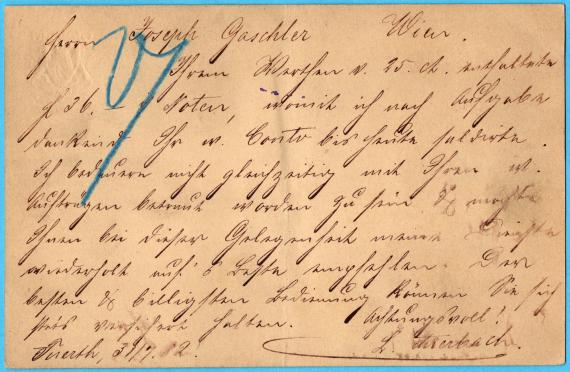 Herrn Joseph Gaschler Wien.
Ihrem Werthen v. 25. ct. enthaltete
f 36.– Noten, womit ich nach Aufgabe
dankend Ihr w. Conto bis heute saldirte.
Ich bedauere nicht gleichzeitig mit Ihren w.
Aufträgen betraut worden zu sein & möchte
Ihnen bei dieser Gelegenheit meine Dienste
wiederholt auf's Beste empfehlen. Der
besten & billigsten Bedienung können Sie sich
stets versichert halten. Achtungsvoll!
Fuerth, 31/7. 82.